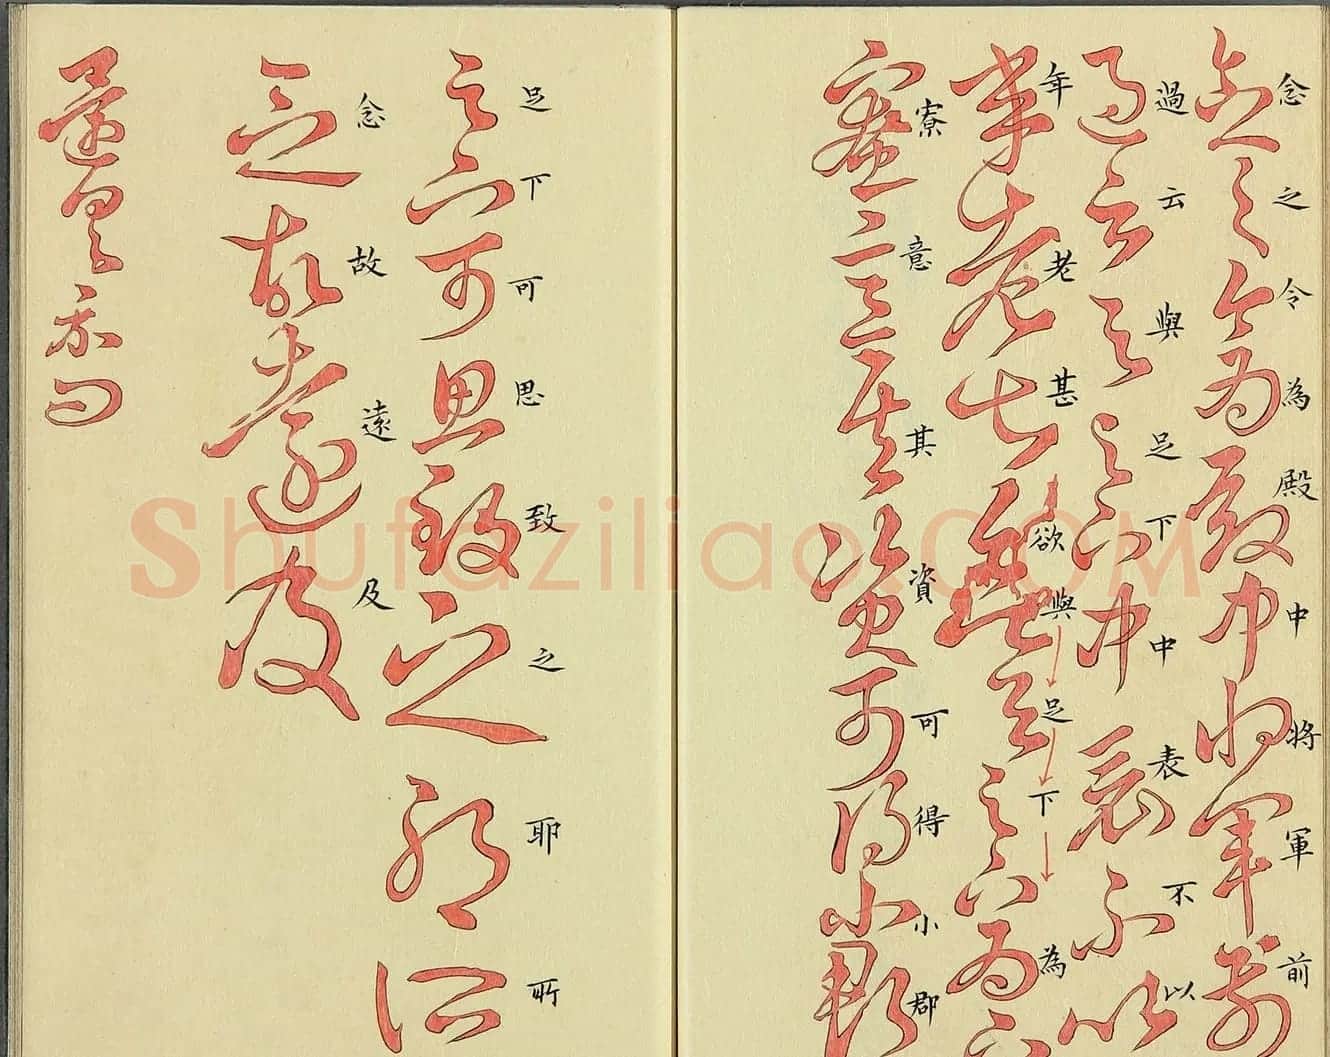 念之令為殿中將軍前
過云與足下中表不以
年老甚欲與足下為
寮意其資可得小郡
足下可思致之耶所
念故遠及
還具示問
Shufaziliao.COM